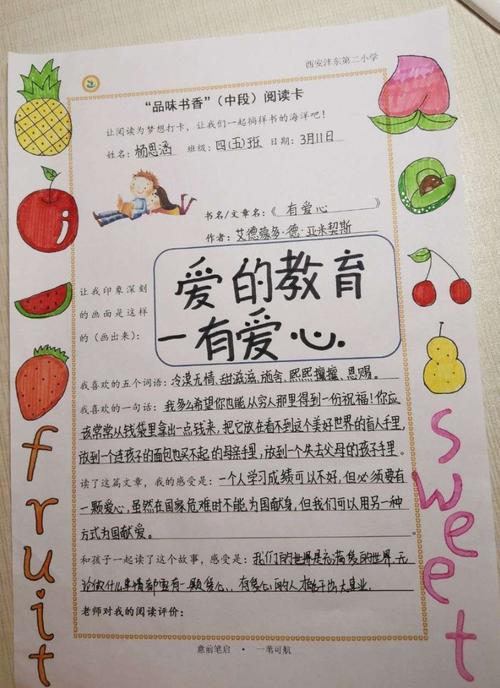 西安沣东第二小学
“品味书香”（中段）阅读卡
让阅读为梦想打卡，让我们一起徜徉书的海洋吧！
姓名：杨思涵 班级：四(五)班 日期：3月11日
书名/文章名：《 有爱心 》
作者：艾德蒙多·德·亚米契斯
让我印象深刻
的画面是这样
的（画出来）：
爱的教育
—有爱心.
我喜欢的五个词语：冷漠无情、甜滋滋、施舍、熙熙攘攘、恩赐。
我喜欢的一句话：我多么希望你也能从穷人那里得到一份祝福！你应
该常常从钱袋里拿出一点钱来，把它放在看不到这个美好世界的盲人手里，
放到一个连孩子的面包也买不起的母亲手里，放到一个失去父母的孩子手里。
读了这篇文章，我的感受是：一个人学习成绩可以不好，但必须要有
一颗爱心，虽然在国家危难时不能为国献身，但我们可以用另一种
方式为国献爱。
和孩子一起读了这个故事，感受是：我们的世界是充满爱的世界，无
论做什么事情都要有一颗爱心，有爱心的人才能干出大事业。
老师对我的阅读评价：
意前笔启 · 一苇可航
fruit
sweet